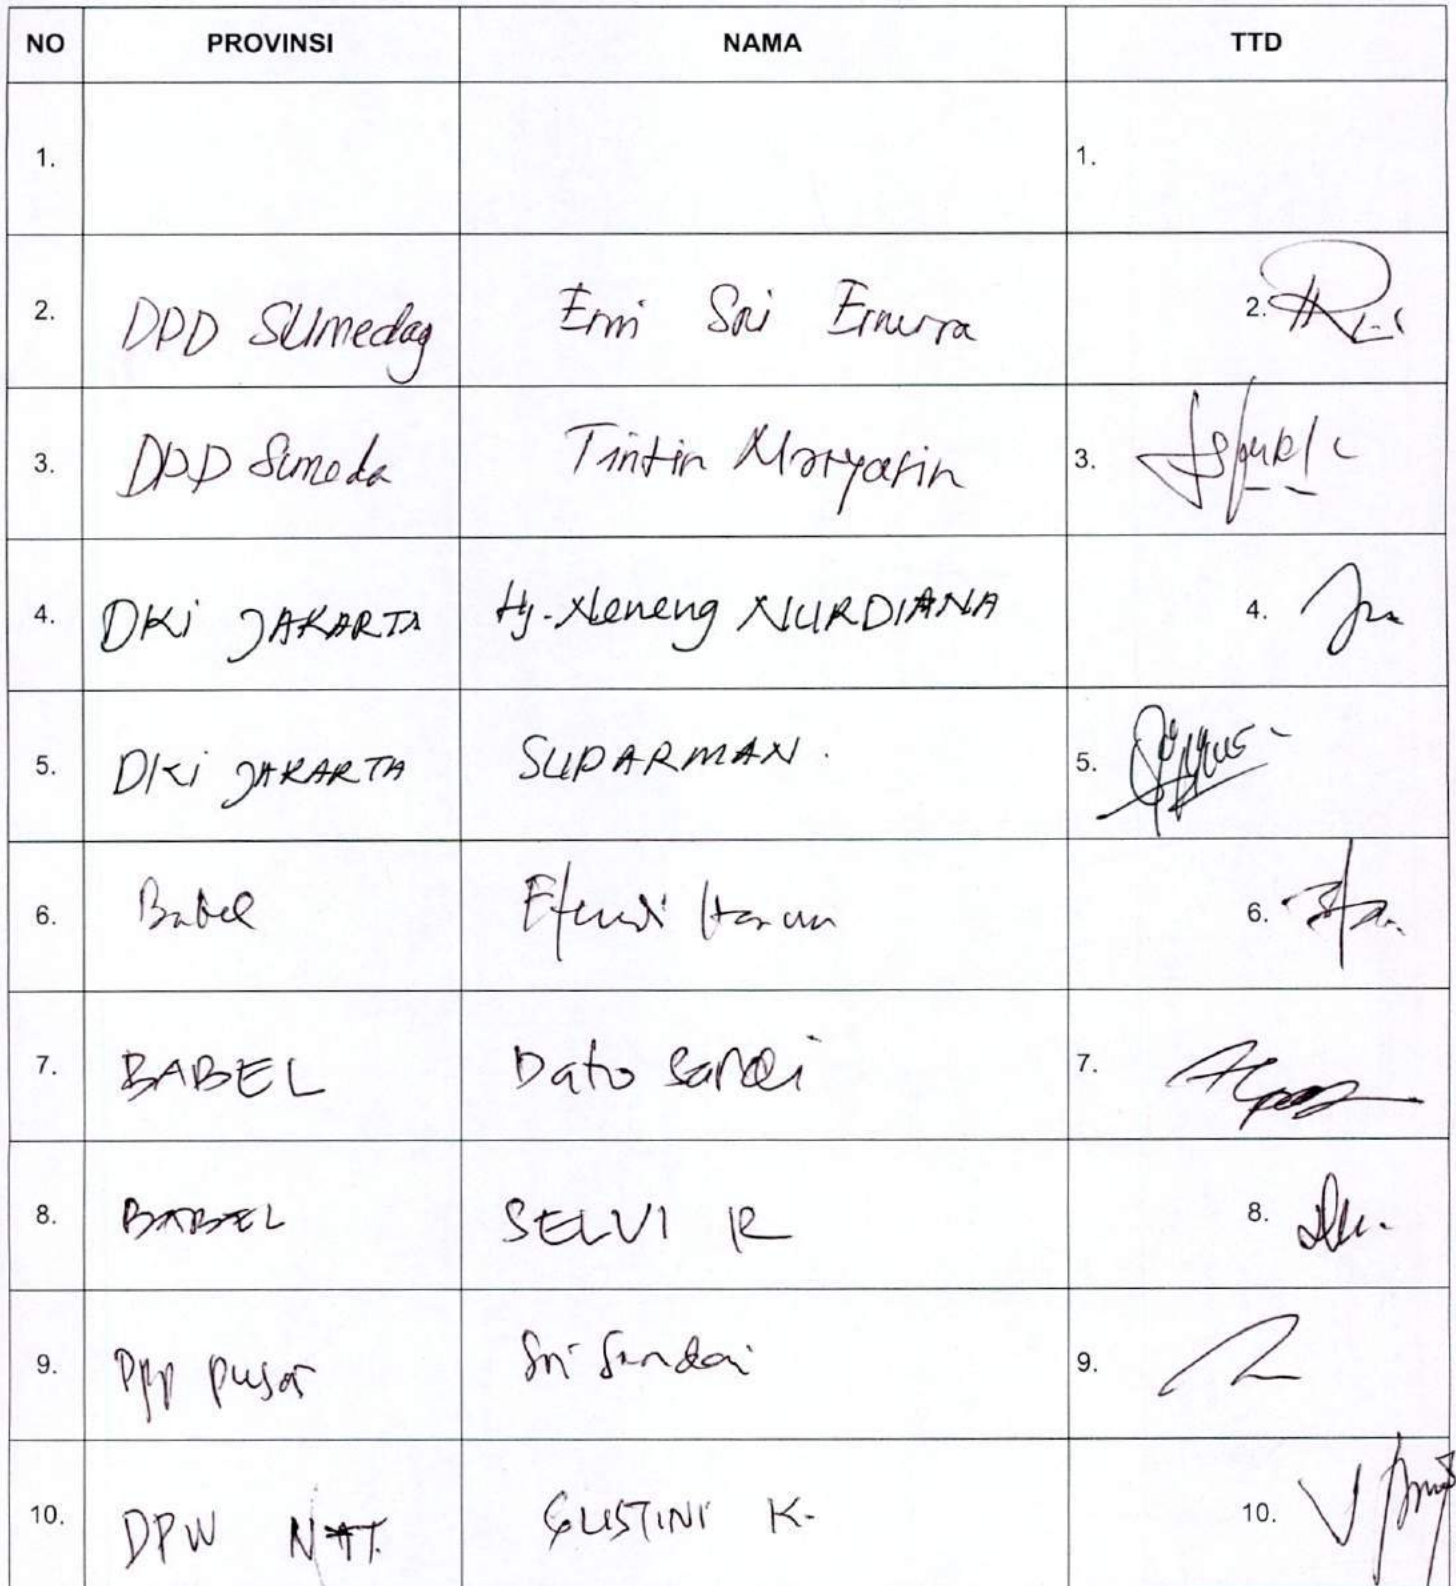 NO PROVINSI NAMA TTD
1. 1.
2. DPD SUmedag Erni Sri Ernurra 2.
3. DPD Sumeda Tintin Maryatin 3.
4. DKi JAKARTA Hj. Neneng NURDIANA 4.
5. DKi JAKARTA SUPARMAN. 5.
6. Babel Efendi Harun 6.
7. BABEL Dato 7.
8. BABEL SELVI R 8.
9. pusat Sri 9.
10. DPW GUSTINI K. 10.